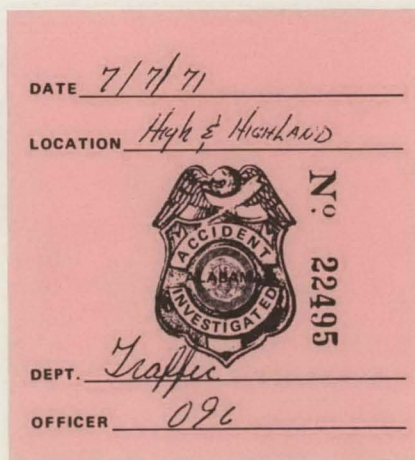 DATE 7/7/71
LOCATION High & HIGHLAND
No. 22495
ACCIDENT
ALABAMA
INVESTIGATED
DEPT. Traffic
OFFICER 096